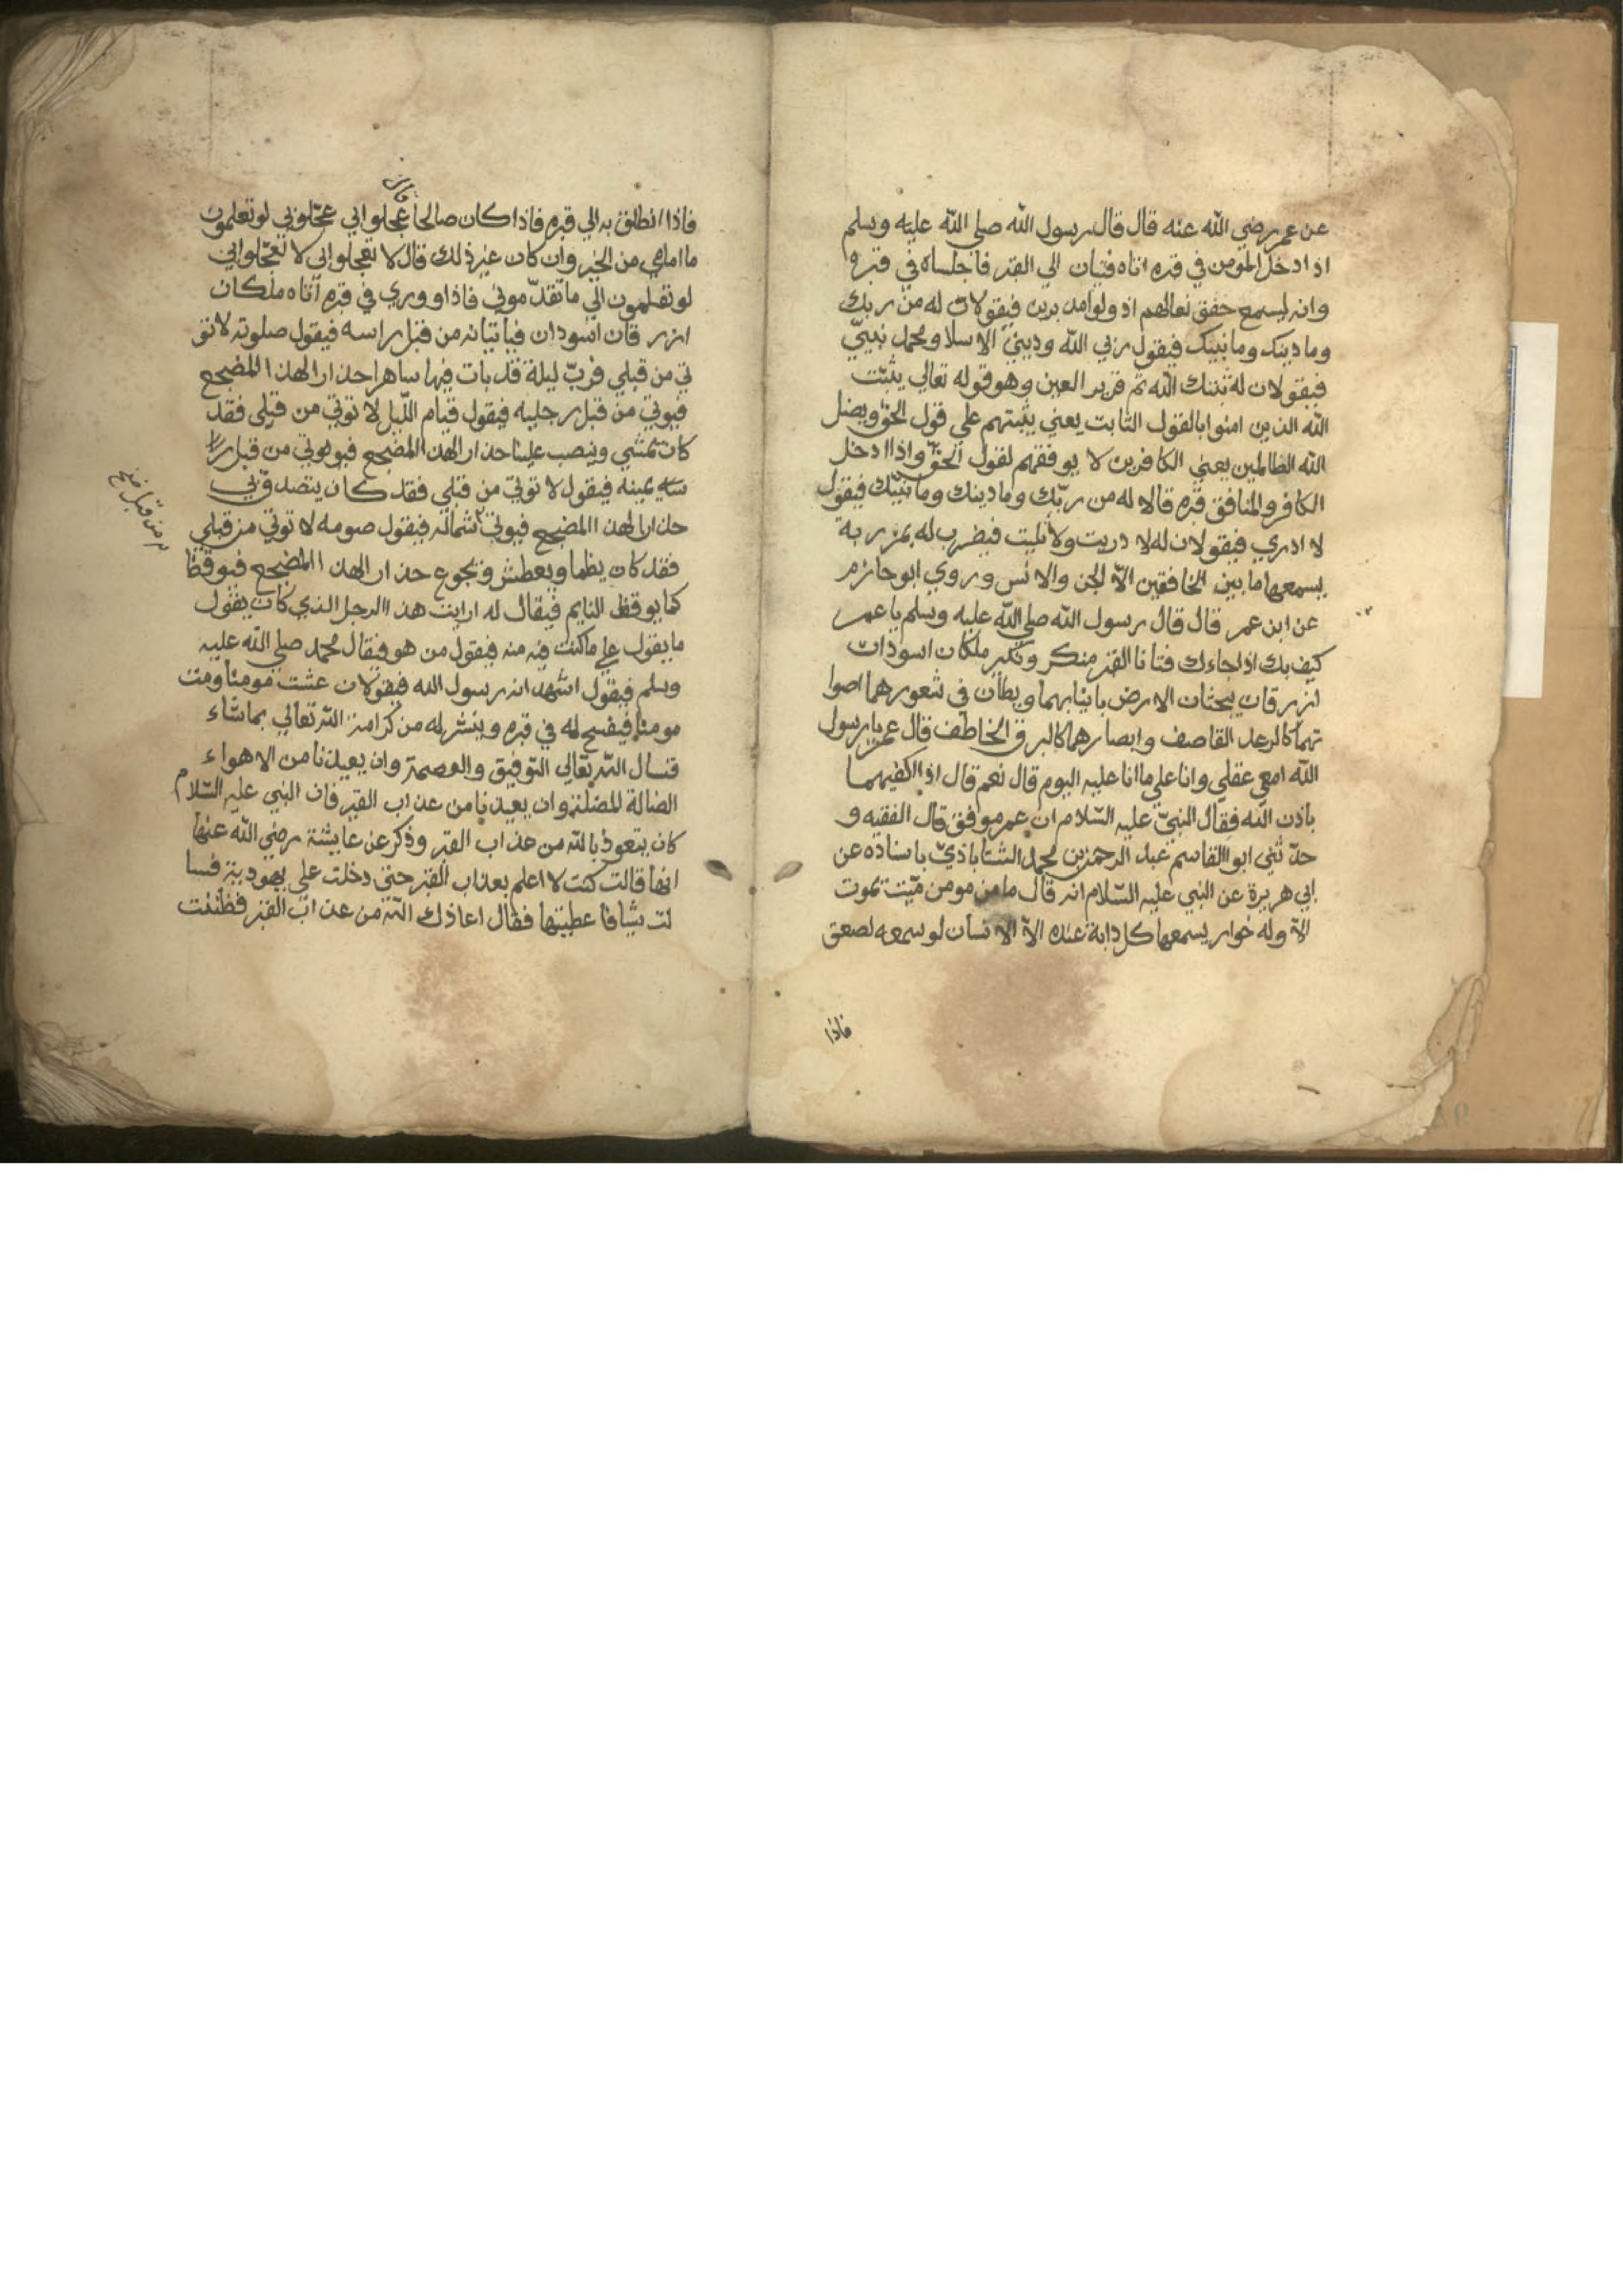 عن عمر رضي الله عنه قال قال رسول الله صلي الله عليه وسلم
اذا دخل المومن في قبره اتاه فتيان الي القبر فاجلساه في قبره وا
وانه ليسمع خفق نعالهم اذ ولوا مدبرين فيقولان له من ربك
وما دينك وما نبيك فيقول ربي الله وديني الاسلا ومحمد نبيي
فيقولان له ثبتك الله نم قرير العين وهو قوله تعالي يثبت
الله الذين امنوا بالقول الثابت يعني يثبتهم علي قول الحق ويضل
الله الظالمين يعني الكافرين لا يوفقهم لقول الحق واذا ادخل
الكافر والمنافق قبره قالا له من ربك وما دينك وما نبيك فيقول
لا ادري فيقولان له لا دريت ولا تليت فيضرب له بمزربة
يسمعها ما بين الخافقين الا الجن والانس وروي ابو حازم
عن ابن عمر قال قال رسول الله صلي الله عليه وسلم يا عمر
كيف بك اذا جاءك فتانا القبر منكر ونكير ملكان اسودان
ازرقان يبحثان الارض بانيابهما ويطأن في شعورهما اصوا
تهما كالرعد القاصف وابصارهما كالبرق الخاطف قال عمر يا رسول
الله امعي عقلي وانا علي ما انا عليه اليوم قال نعم قال اذا اكفيهما
باذن الله فقال النبي عليه السلام ان عمر موفق قال الفقيه و
حدثني ابوا القاسم عبد الرحمن بن محمد الشتاباذي باسناده عن
ابي هريرة عن النبي عليه السلام انه قال ما من مومن ميت يموت
الا وله خوار يسمعها كل دابة عنده الا الانسان لو سمعه لصعق
فاذا
فاذا انطلق به الي قبره فاذا كان صالحا عجلوا بي عجلوني لو تعلمون
ما امامي من الخير وان كان غير ذلك قال لا تعجلوا بي لا تعجلوا بي
لو تعلمون الي ما تقدموني فاذا ووري في قبره اتاه ملكان
ازر قان اسودان فياتيانه من قبل راسه فيقول صلوته لا تو
تي من قبلي فرب ليلة قد بات فيها ساهرا حذارا لهذا المضجع
فيوتي من قبل رجليه فيقول قيام الليل لا توتي من قبلي فقد
كان يمشي وينصب علينا حذارا لهذا المضجع فيوتي من قبل را
سه يمينه فيقول لا توتي من قبلي فقد كان يتصدق بي
حذارا لهذا المضجع فيوتي شماله فيقول صومه لا توتي من قبلي
فقد كان يظما ويعطش ويجوع حذارا لهذا المضجع فيوقظ
كما يوقظ النايم فيقال له ارايت هذا الرجل الذي كان يقول
ما يقول علي ما كنت فيه منه فيقول من هو فيقال محمد صلي الله عليه
وسلم فيقول اشهد انه رسول الله فيقولان عشت مومنا ومت
مومنا فيفسح له في قبره وينشر له من كرامة الله تعالي بما شاء
فنسال الله تعالي التوفيق والعصمة وان يعيذنا من الاهواء
الضالة المضلة وان يعيذنا من عذاب القبر فان النبي عليه السلام
كان يتعوذ بالله من عذاب القبر وذكر عن عايشة رضي الله عنها
انها قالت كنت لا اعلم بعذاب القبر حتي دخلت علي يهودية فسا
لت شيافا عطيتها فقال اعاذك الله من عذاب القبر فظننت